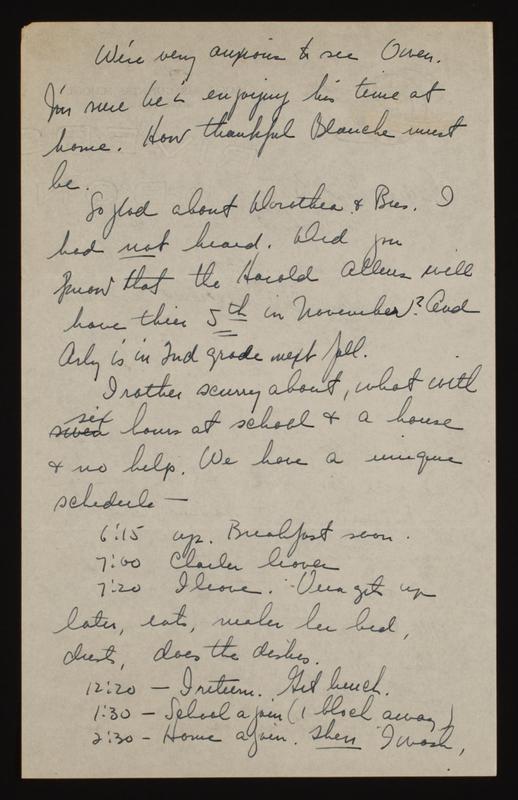 We're very anxious to see Owen.
I'm sure he is enjoying his time at
home. How thankful Blanche must
be.
So glad about Dorothea & Bus. I
had not heard. Did you
know that the Harold Allens will
have their 5th in November? And
Arly is in 2nd grade next fall.
I rather scurry about, what with
six
seven hours at school & a house
& no help. We have a unique
schedule —
6:15 up. Breakfast soon.
7:00 Charles leaves
7:20 I leave. Vera gets up
later, eats, makes her bed,
dusts, does the dishes.
12:20 — I return. Get lunch.
1:30 — School again (1 block away)
2:30 - Home again. Then I wash,